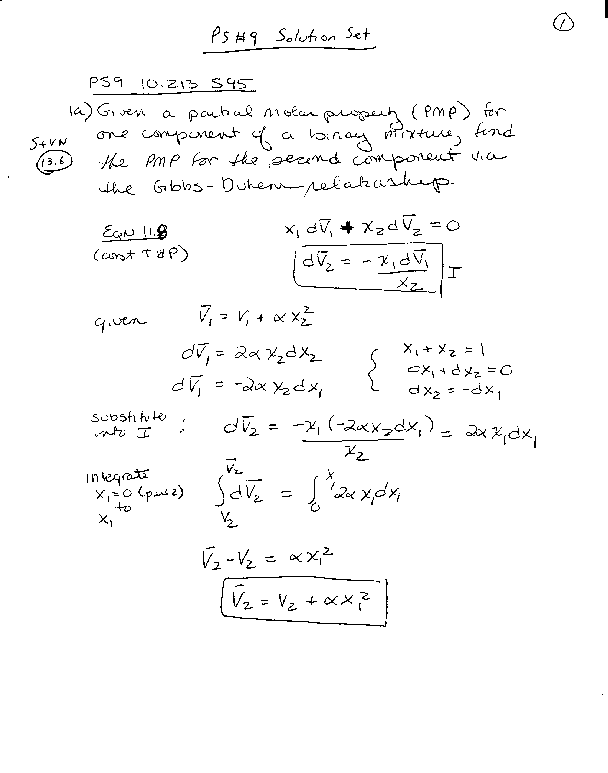 ①
PS#9 Solution Set
PS9 10.213 S95
1a) Given a partial molar property (PMP) for
one component of a binary mixture, find
S+VN
13.6
the PMP for the second component via
the Gibbs-Duhem relationship.
EQN 11.8
(const T & P)
x₁ dV̄₁ + x₂ dV̄₂ = 0
dV̄₂ = - x₁ dV̄₁ / x₂ I
given V̄₁ = V₁ + αx₂²
dV̄₁ = 2α x₂ dx₂
dV̄₁ = -2α x₂ dx₁
{ x₁ + x₂ = 1
dx₁ + dx₂ = 0
dx₂ = -dx₁
substitute
into I : dV̄₂ = -x₁ (-2αx₂dx₁) / x₂ = 2αx₁dx₁
integrate
x₁=0 (pure 2)
to
x₁
∫_{V₂}^{V̄₂} dV̄₂ = ∫₀^{x₁} 2αx₁dx₁
V̄₂ - V₂ = αx₁²
V̄₂ = V₂ + αx₁²